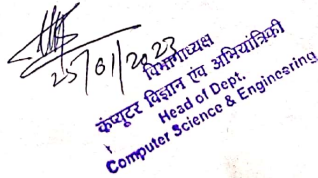 25/01/2023
विभागाध्यक्ष
कंप्यूटर विज्ञान एंव अभियांत्रिकी
Head of Dept.
Computer Science & Engineering